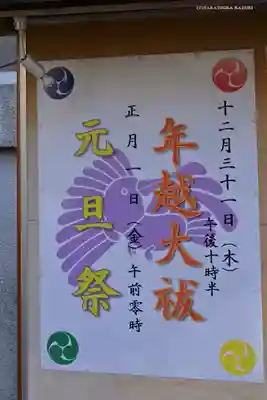 十二月三十一日（木）
午後十時半
年越大祓
正月一日（金）午前零時
元旦祭